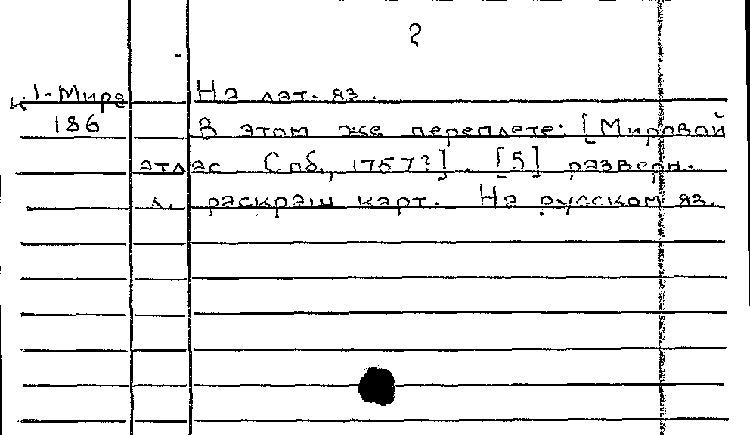 2
К 1-Мира На лат. яз.
1/86 В этом же переплете: [Мировой
атлас Спб., 1757?]. [5] разверн.
л. раскраш карт. На русском яз.